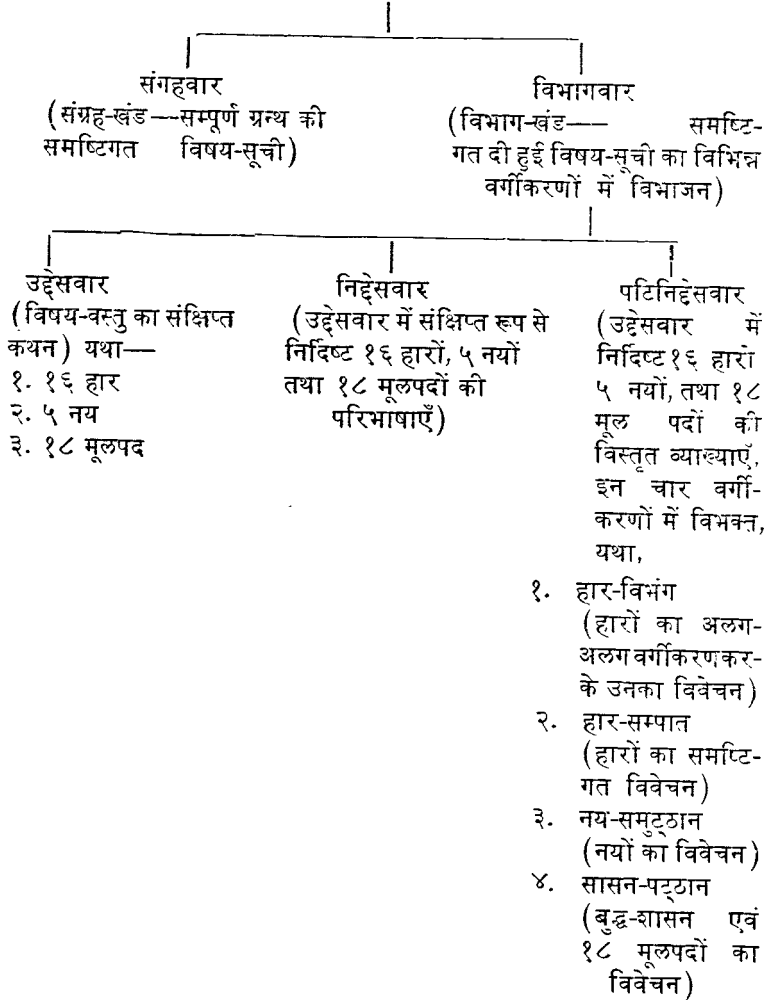 संगहवार
(संग्रह-खंड—सम्पूर्ण ग्रन्थ की
समष्टिगत विषय-सूची)
विभागवार
(विभाग-खंड— समष्टि-
गत दी हुई विषय-सूची का विभिन्न
वर्गीकरणों में विभाजन)
उद्देसवार
(विषय-वस्तु का संक्षिप्त
कथन) यथा—
१. १६ हार
२. ५ नय
३. १८ मूलपद
निद्देसवार
(उद्देसवार में संक्षिप्त रूप से
निर्दिष्ट १६ हारों, ५ नयों
तथा १८ मूलपदों की
परिभाषाएँ)
पटिनिद्देसवार
(उद्देसवार में
निर्दिष्ट १६ हारों
५ नयों, तथा १८
मूल पदों की
विस्तृत व्याख्याएँ,
इन चार वर्गी-
करणों में विभक्त,
यथा,
१. हार-विभंग
(हारों का अलग-
अलग वर्गीकरण कर-
के उनका विवेचन)
२. हार-सम्पात
(हारों का समष्टि-
गत विवेचन)
३. नय-समुट्ठान
(नयों का विवेचन)
४. सासन-पट्ठान
(बुद्ध-शासन एवं
१८ मूलपदों का
विवेचन)